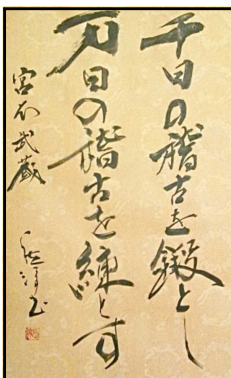 千日の稽古を鍛とし
万日の稽古を練とす
宮本武蔵